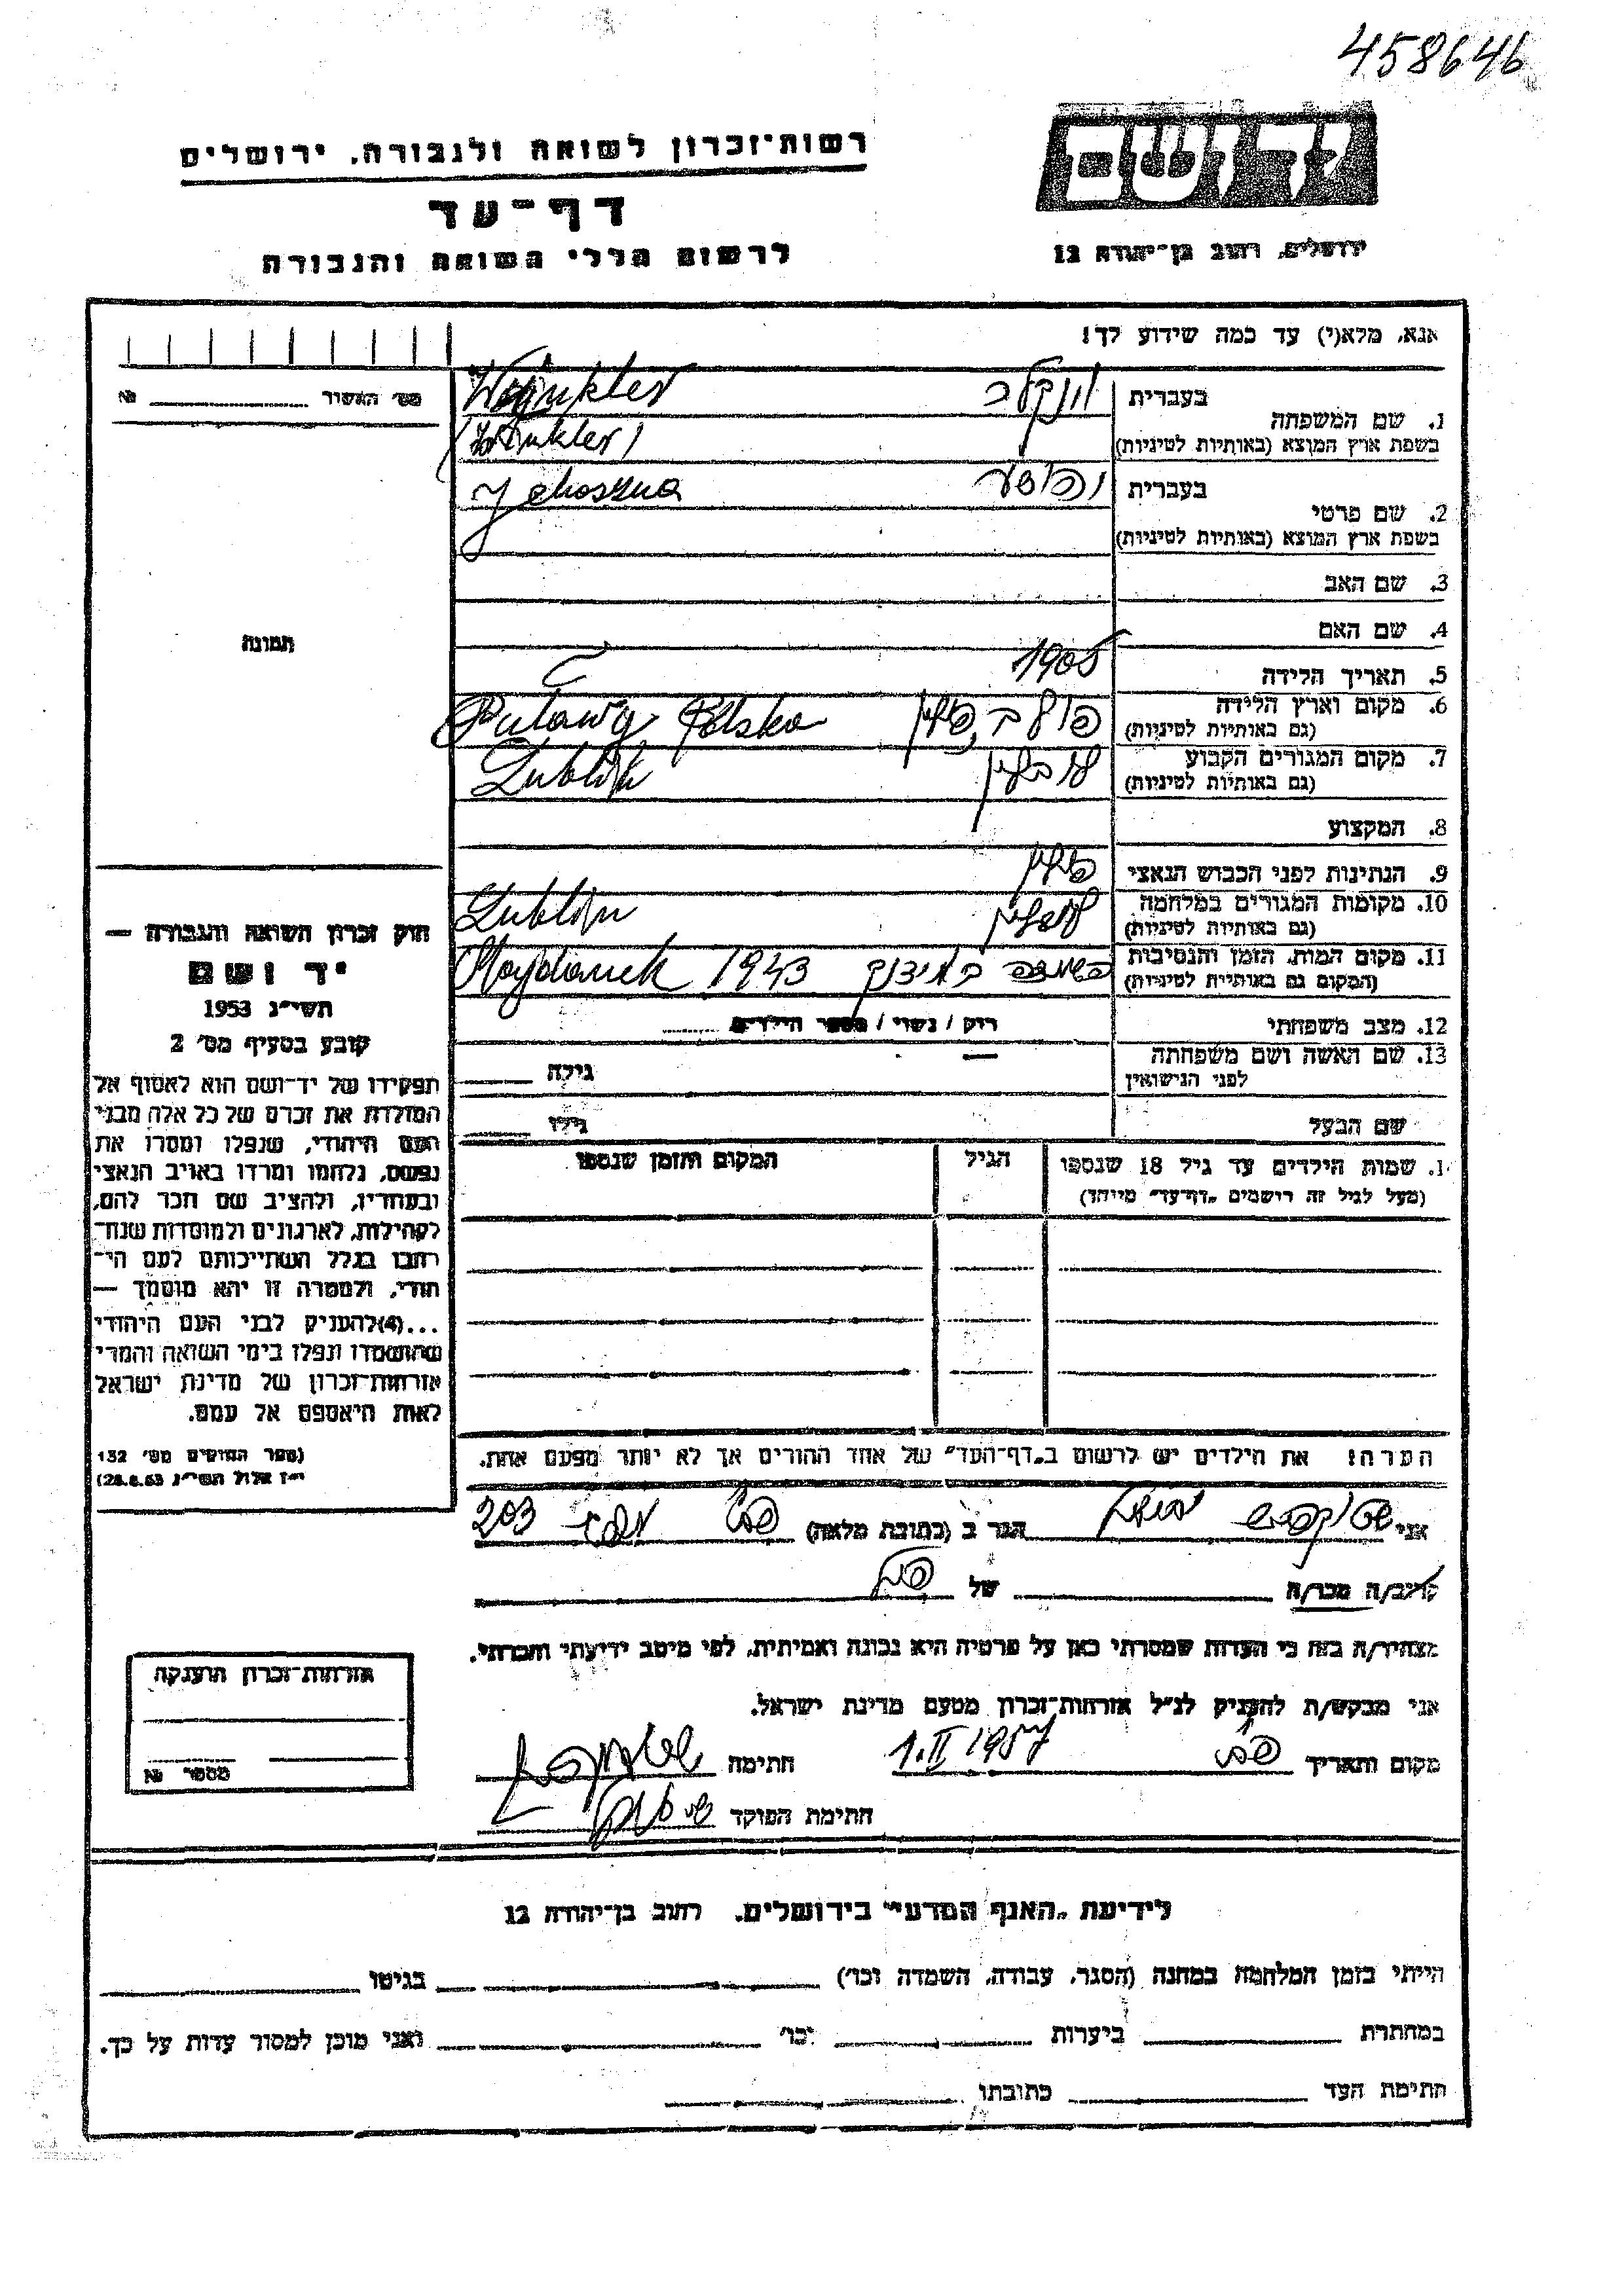 458646
יד ושם
ירושלים, רחוב בן־יהודה 12
רשות־זכרון לשואה ולגבורה, ירושלים
דף־עד
לרשום חללי השואה והגבורה
אנא, מלא(י) עד כמה שידוע לך!
מס׳ האשור № 
בעברית וינקלר Winkler
1. שם המשפחה
בשפת ארץ המוצא (באותיות לטיניות) (Winkler)
בעברית יהושע Jehoszua
2. שם פרטי
בשפת ארץ המוצא (באותיות לטיניות)
3. שם האב
4. שם האם
תמונה
5. תאריך הלידה 1905
6. מקום וארץ הלידה פולין Puławy Polska
(גם באותיות לטיניות)
7. מקום המגורים הקבוע לובלין Lublin
(גם באותיות לטיניות)
8. המקצוע
9. הנתינות לפני הכבוש הנאצי פולין
10. מקומות המגורים במלחמה לובלין Lublin
(גם באותיות לטיניות)
11. מקום המות, הזמן והנסיבות במידנק 1943 Majdanek
(המקום גם באותיות לטיניות)
12. מצב משפחתי רוק / נשוי / מספר הילדים
13. שם האשה ושם משפחתה גילה
לפני הנישואין
שם הבעל גילו
1. שמות הילדים עד גיל 18 שנספו הגיל המקום והזמן שנספו
(מעל לגיל זה רושמים „דף־עד״ מיוחד)
חוק זכרון השואה והגבורה —
יד ושם
תשי״ג 1953
קובע בסעיף מס׳ 2
תפקידו של יד־ושם הוא לאסוף אל
המולדת את זכרם של כל אלה מבני
העם היהודי, שנפלו ומסרו את
נפשם, נלחמו ומרדו באויב הנאצי
ובעוזריו, ולהציב שם וזכר להם,
לקהילות, לארגונים ולמוסדות שנח־
רבו בגלל השתייכותם לעם הי־
הודי, ולמטרה זו יהא מוסמך —
...(4)להעניק לבני העם היהודי
שהושמדו ונפלו בימי השואה והמרי
אזרחות־זכרון של מדינת ישראל
לאות היאספם אל עמם.
(ספר החוקים מס׳ 132
י״ז אלול תשי״ג 28.8.53)
הערה! את הילדים יש לרשום ב„דף־העד״ של אחד ההורים אך לא יותר מפעם אחת.
אני הגר ב (כתובת מלאה) 203
קרוב/ה מכר/ה של
מצהיר/ה בזה כי העדות שמסרתי כאן על פרטיה היא נכונה ואמיתית, לפי מיטב ידיעתי והכרתי.
אני מבקש/ת להעניק לנ״ל אזרחות־זכרון מטעם מדינת ישראל.
מקום ותאריך 1.II 1957 חתימה
חתימת הפוקד
אזרחות־זכרון הוענקה
מספר №
לידיעת „האגף המדעי״ בירושלים, רחוב בן־יהודה 12
הייתי בזמן המלחמה במחנה (הסגר, עבודה, השמדה וכו׳) בגיטו
במחתרת ביערות וכו׳ ואני מוכן למסור עדות על כך.
חתימת העד כתובתו